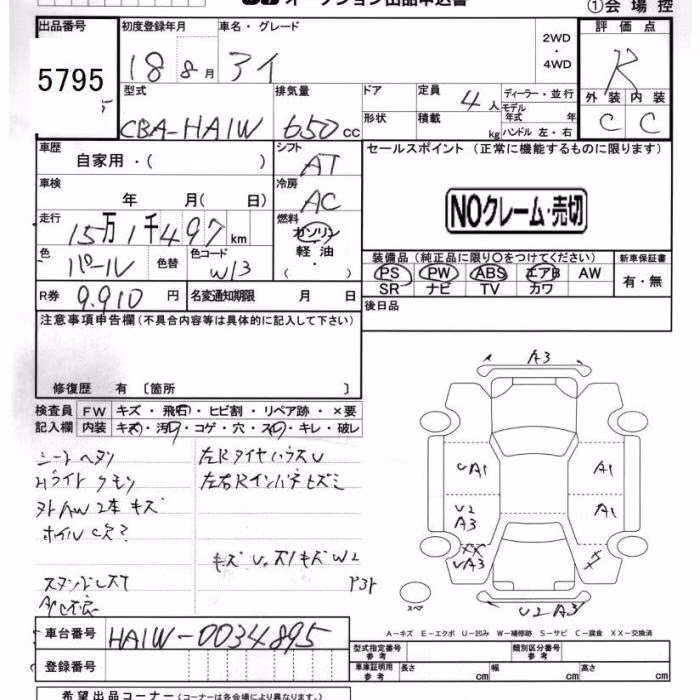 オークション出品申込書
①会場控
出品番号 初度登録年月 車名・グレード 2WD・4WD 評価点
5795 18 8月 アイ R
型式 排気量 ドア 定員 4人 ディーラー・並行
モデル年式 年
外装 内装
CBA-HA1W 650cc 形状 積載 kg ハンドル 左・右 C C
車歴 自家用・( ) シフト AT セールスポイント (正常に機能するものに限ります)
車検 年 月( 日) 冷房 AC NOクレーム・売切
走行 15万1千497km 燃料 ガソリン 軽油 ・( )
色 パール 色替 色コード W13 装備品 (純正品に限り○をつけてください) 新車保証書
PS PW ABS エアB AW 有・無
SR ナビ TV カワ
R券 9.910円 名変通知期限 月 日 後日品
注意事項申告欄(不具合内容等は具体的に記入して下さい)
修復歴 有 〔箇所 〕
検査員 FW キズ・飛石・ヒビ割・リペア跡・×要
記入欄 内装 キズ・汚レ・コゲ・穴・スレ・キレ・破レ
シートヘタリ
ライトクモリ
AW2本キズ
スタットレス
A/C不良
A3
UA1 A1
U2 A3 A1
XX UA3 XX
スペア U2 A3
A-キズ E-エクボ U-凹み W-補修跡 S-サビ C-腐食 XX-交換済
車台番号 HA1W-0034895
型式指定番号 参考 類別区分番号 参考
登録番号 車庫証明用 参考 長さ cm 幅 cm 高さ cm
希望出品コーナー(コーナーは各会場により異なります。)